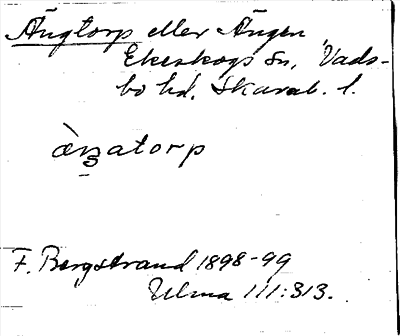 Ängtorp eller Ängen,
Ekeskogs Sn, Vads-
bo hd. Skarab. l.
àᴎʒatorp
F. Bergstrand 1898-99
Ulma 111:313.